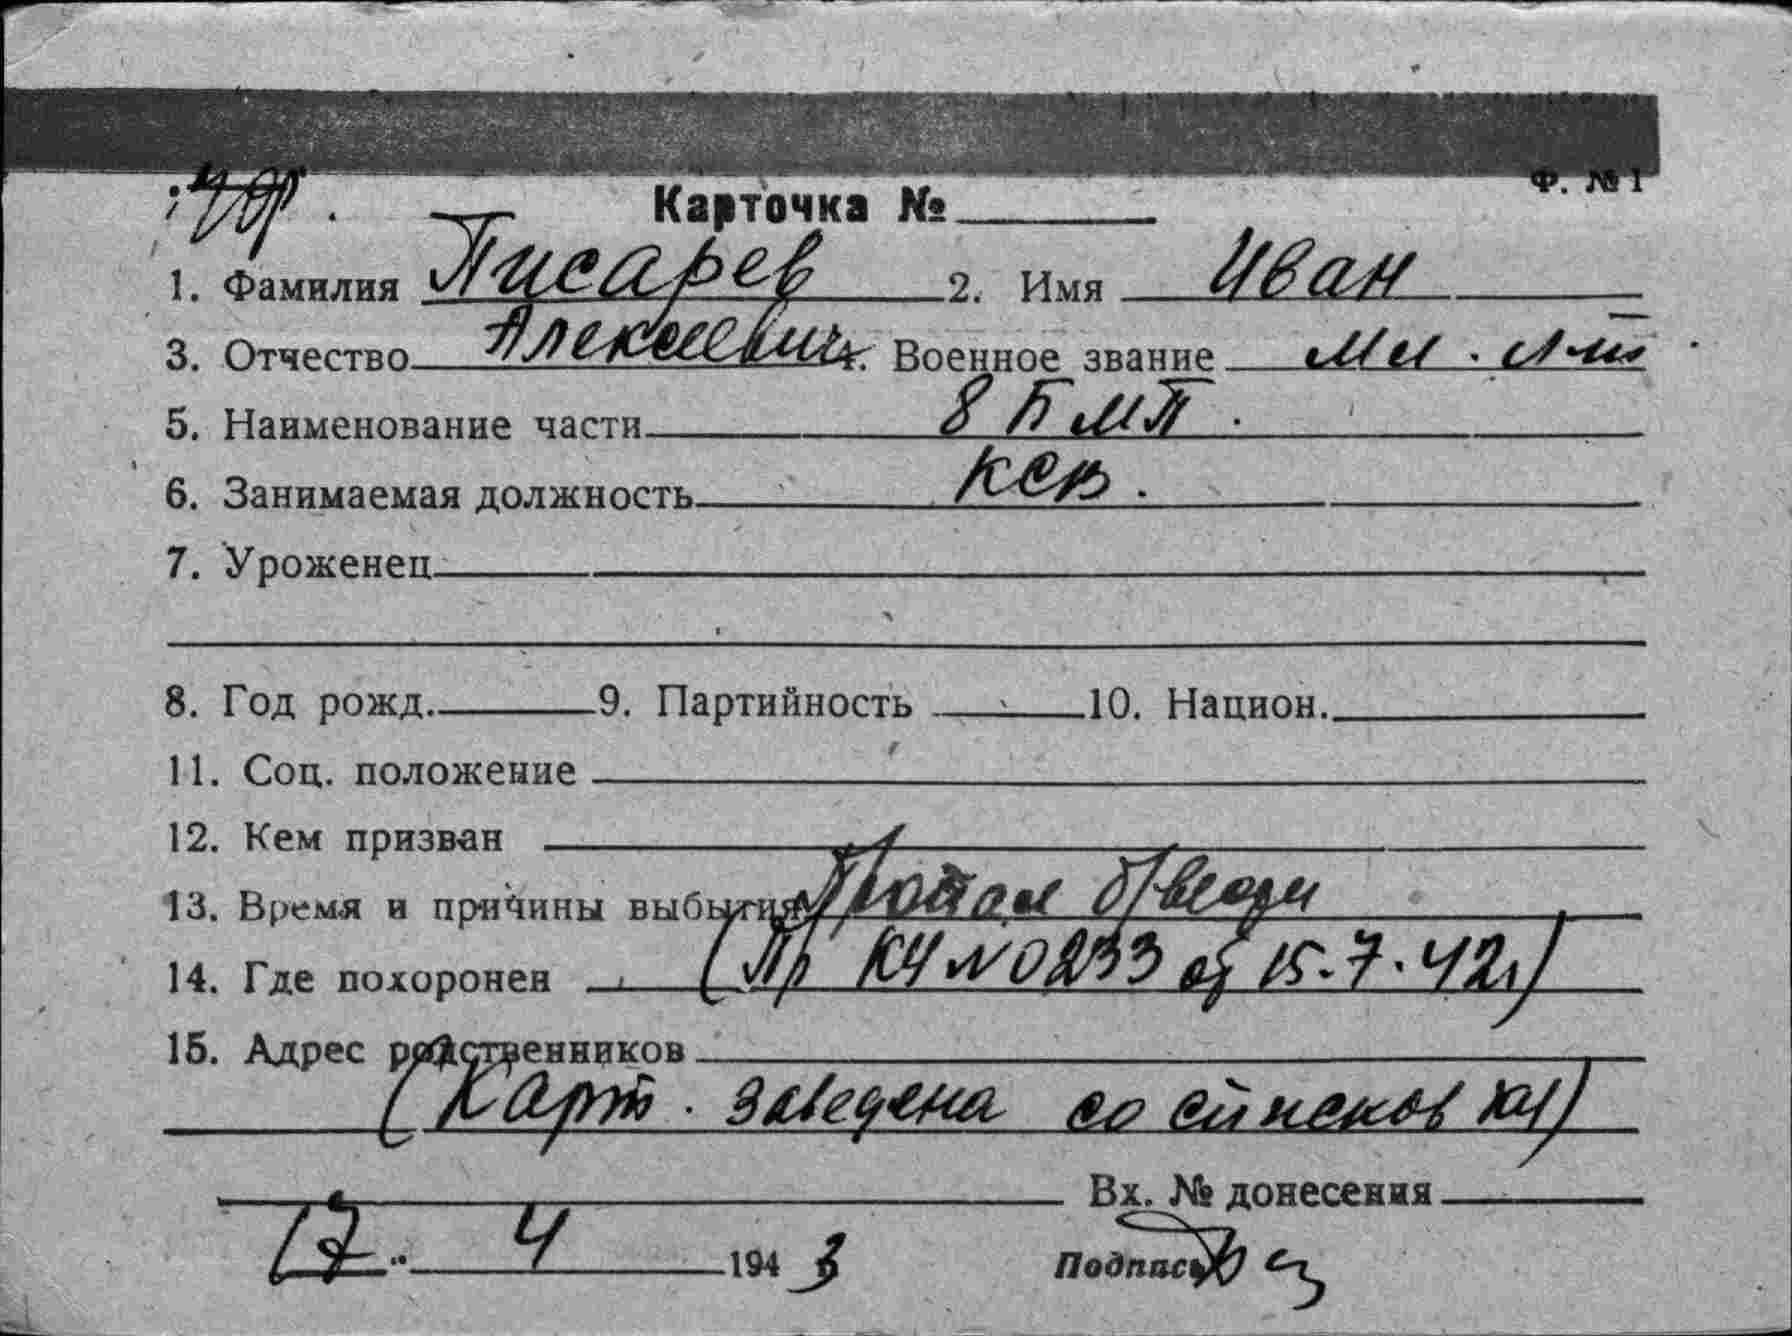 Ф. № 1
Карточка №
1. Фамилия Писарев 2. Имя Иван
3. Отчество Алексеевич 4. Военное звание мл. л-т
5. Наименование части 8 БМП.
6. Занимаемая должность КСВ.
7. Уроженец
8. Год рожд. 9. Партийность 10. Национ.
11. Соц. положение
12. Кем призван
13. Время и причины выбытия Пропал б/вести
14. Где похоронен (Пр КЧ № 0233 от 15.7.42г)
15. Адрес родственников
(Карт. заведена со списков КЧ)
Вх. № донесения
17. 4 1943 Подпись